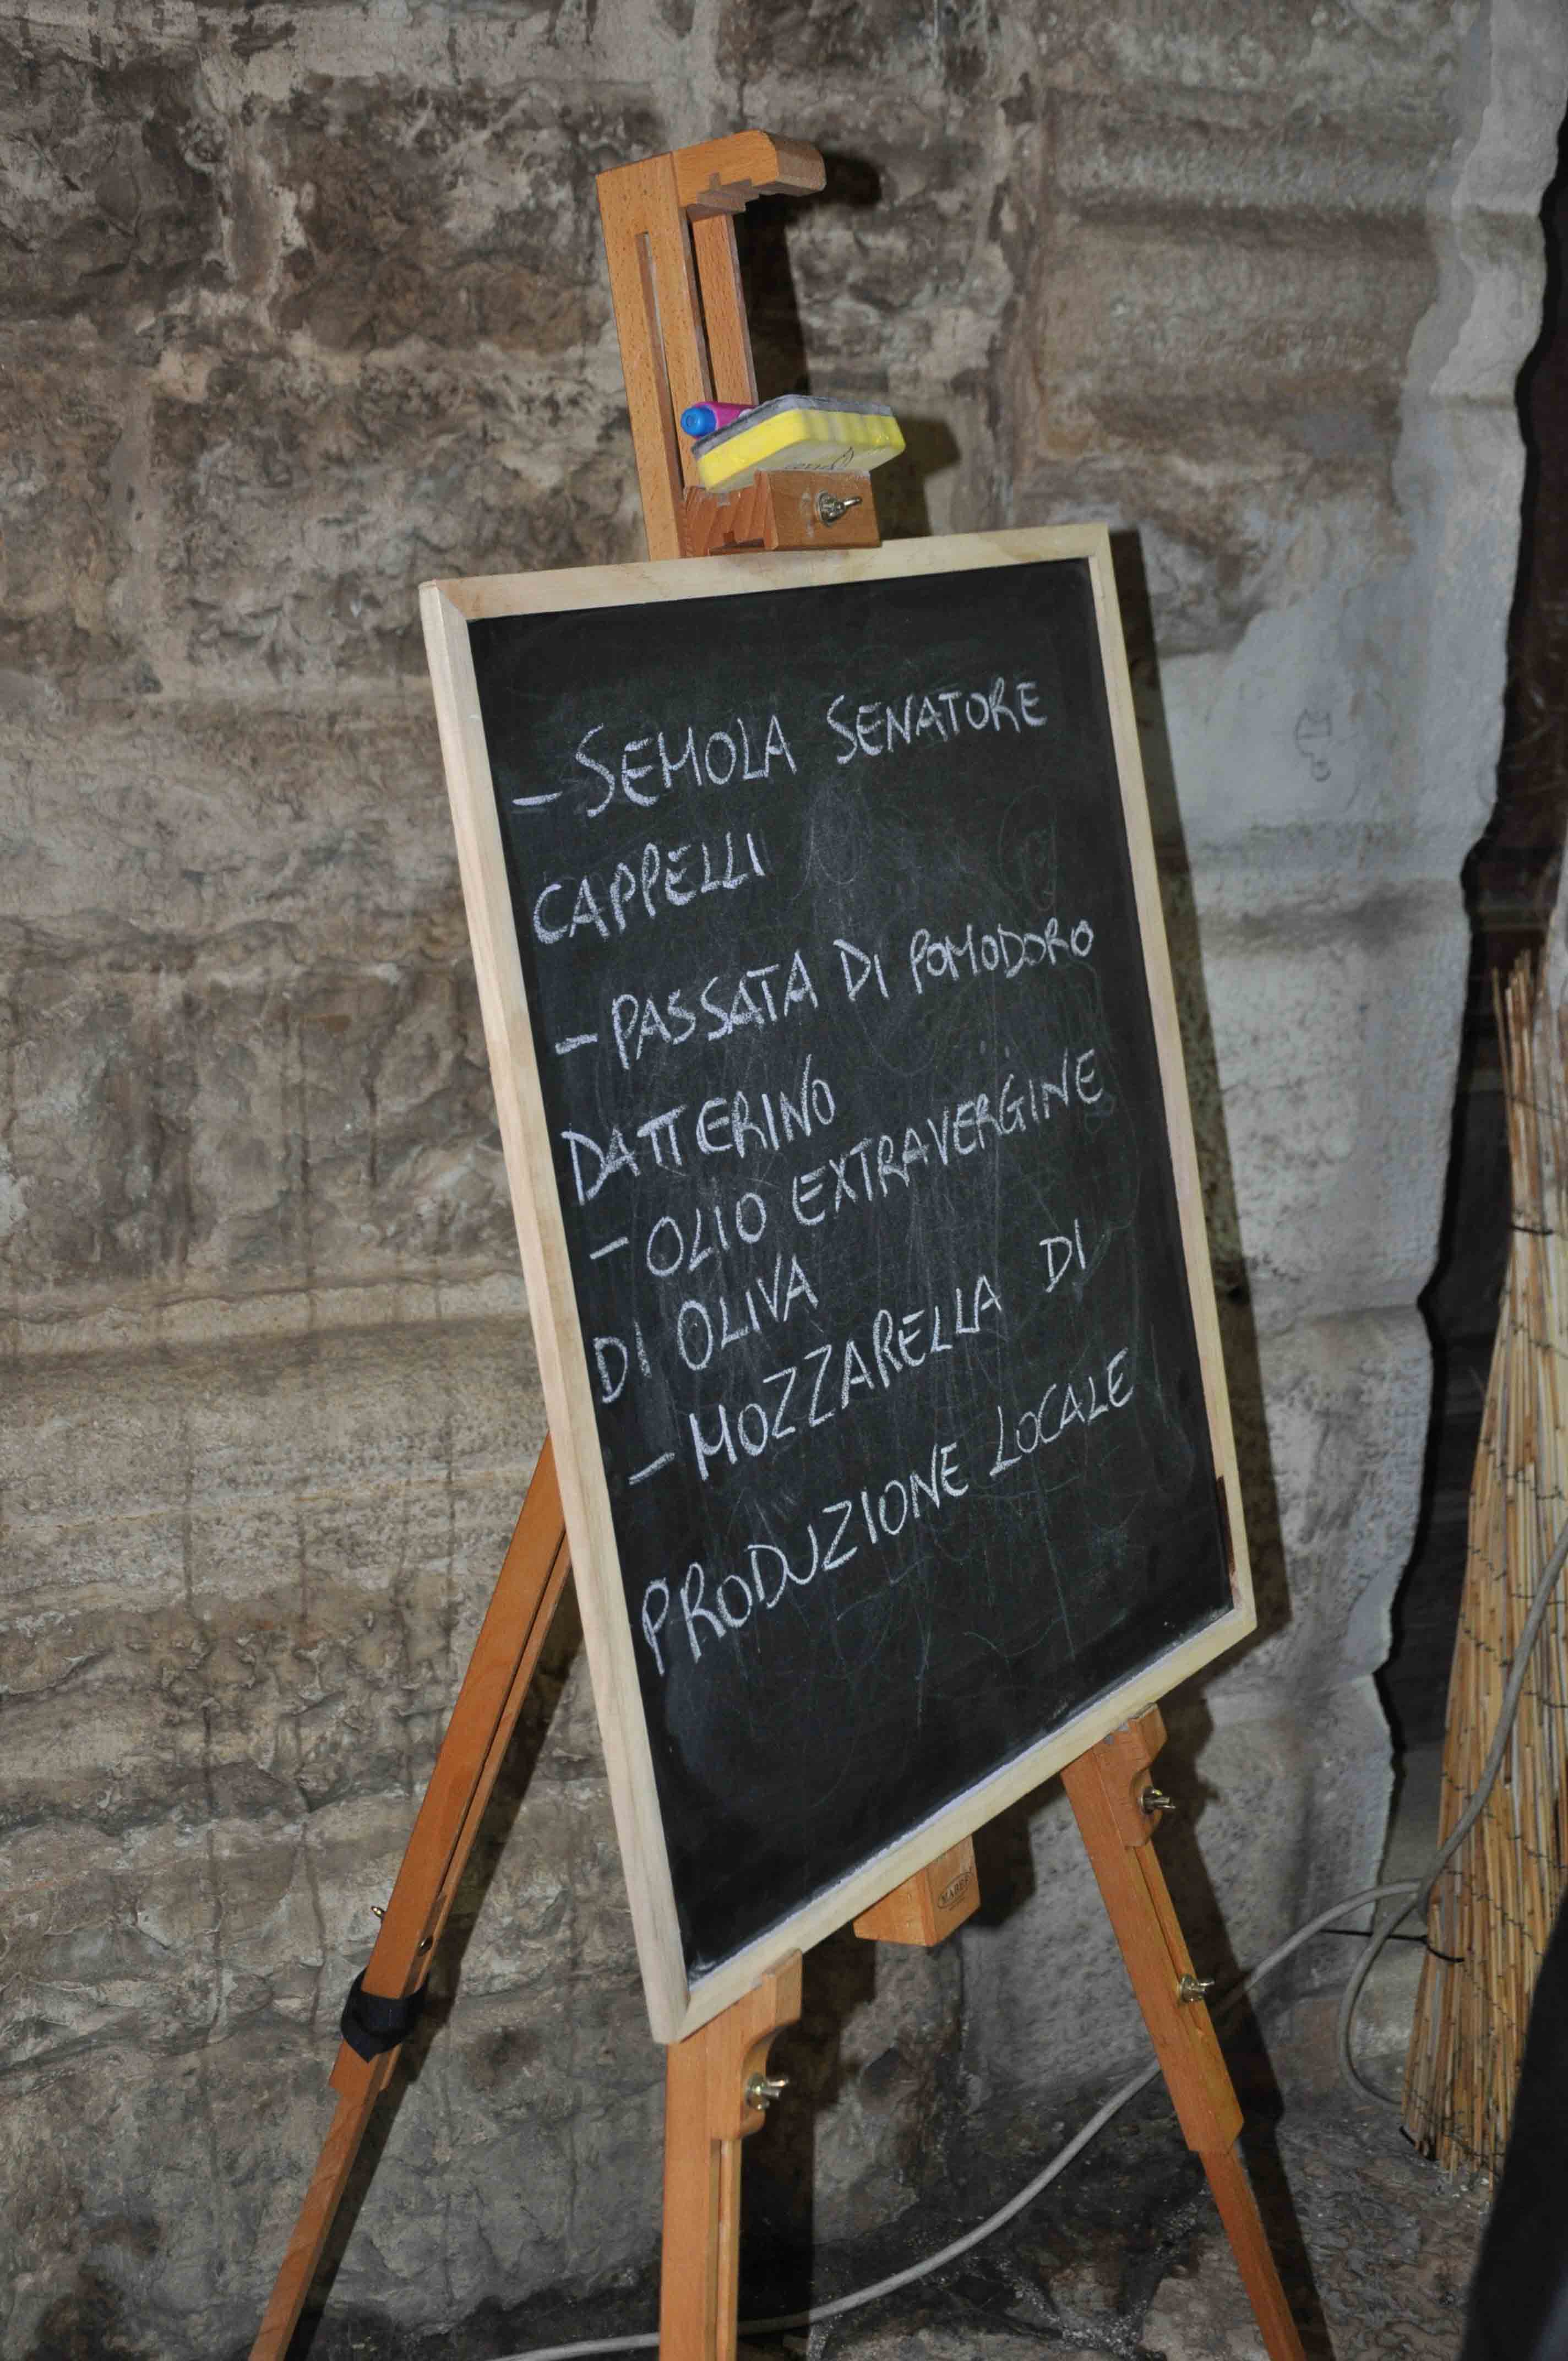 - SEMOLA SENATORE
CAPPELLI
- PASSATA DI POMODORO
DATTERINO
- OLIO EXTRAVERGINE
DI OLIVA
- MOZZARELLA DI
PRODUZIONE LOCALE